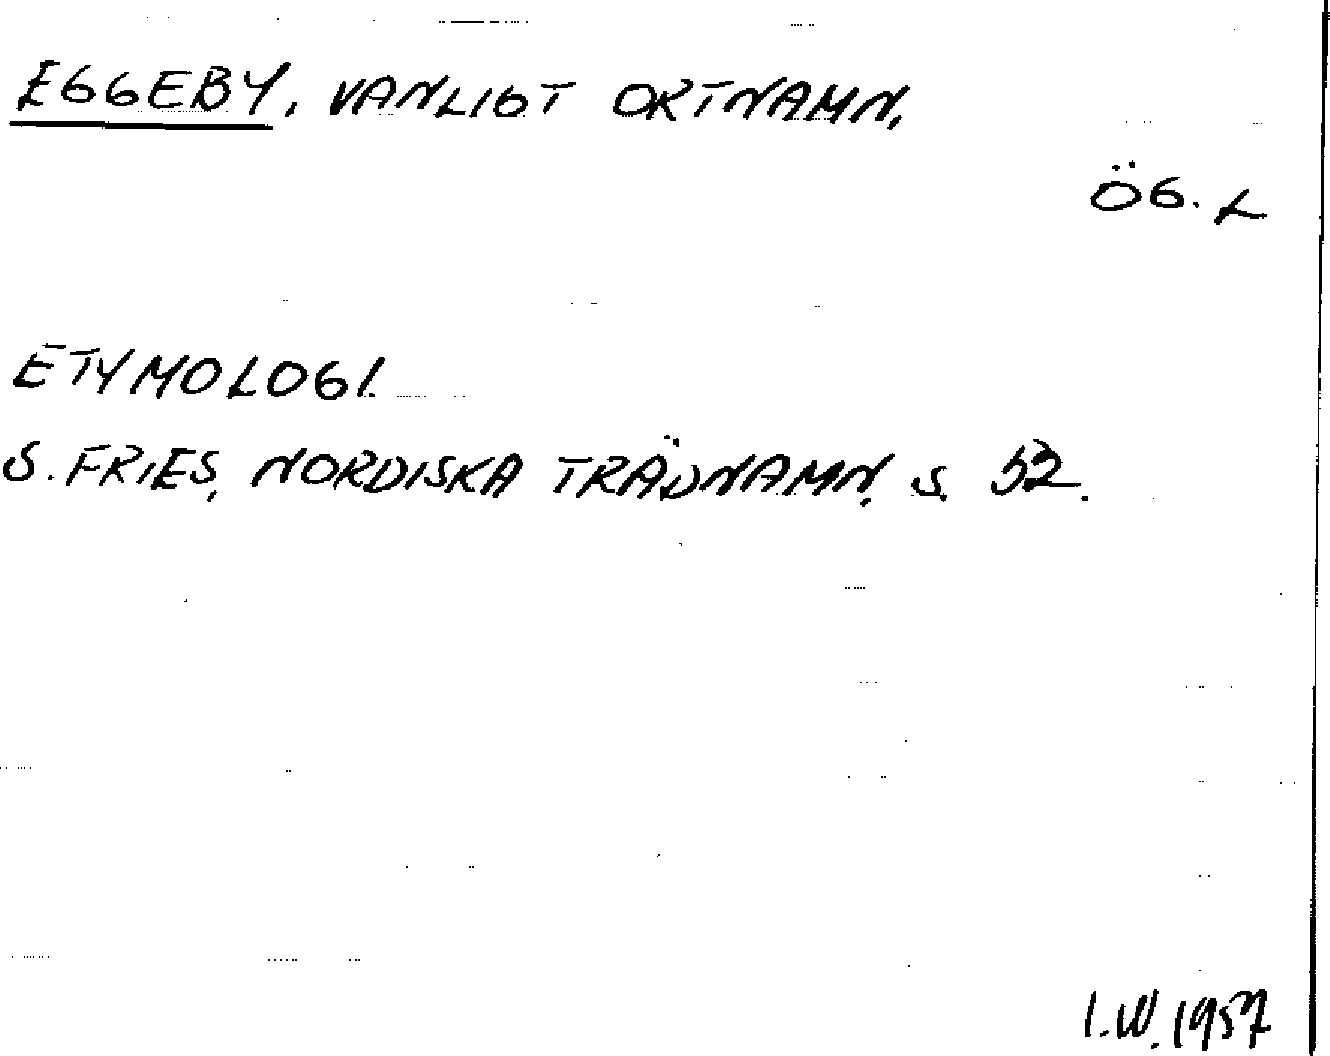 EGGEBY, VANLIGT ORTNAMN,
ÖG. L
ETYMOLOGI.
S. FRIES, NORDISKA TRÄDNAMN, S. 52.
I.W. 1957